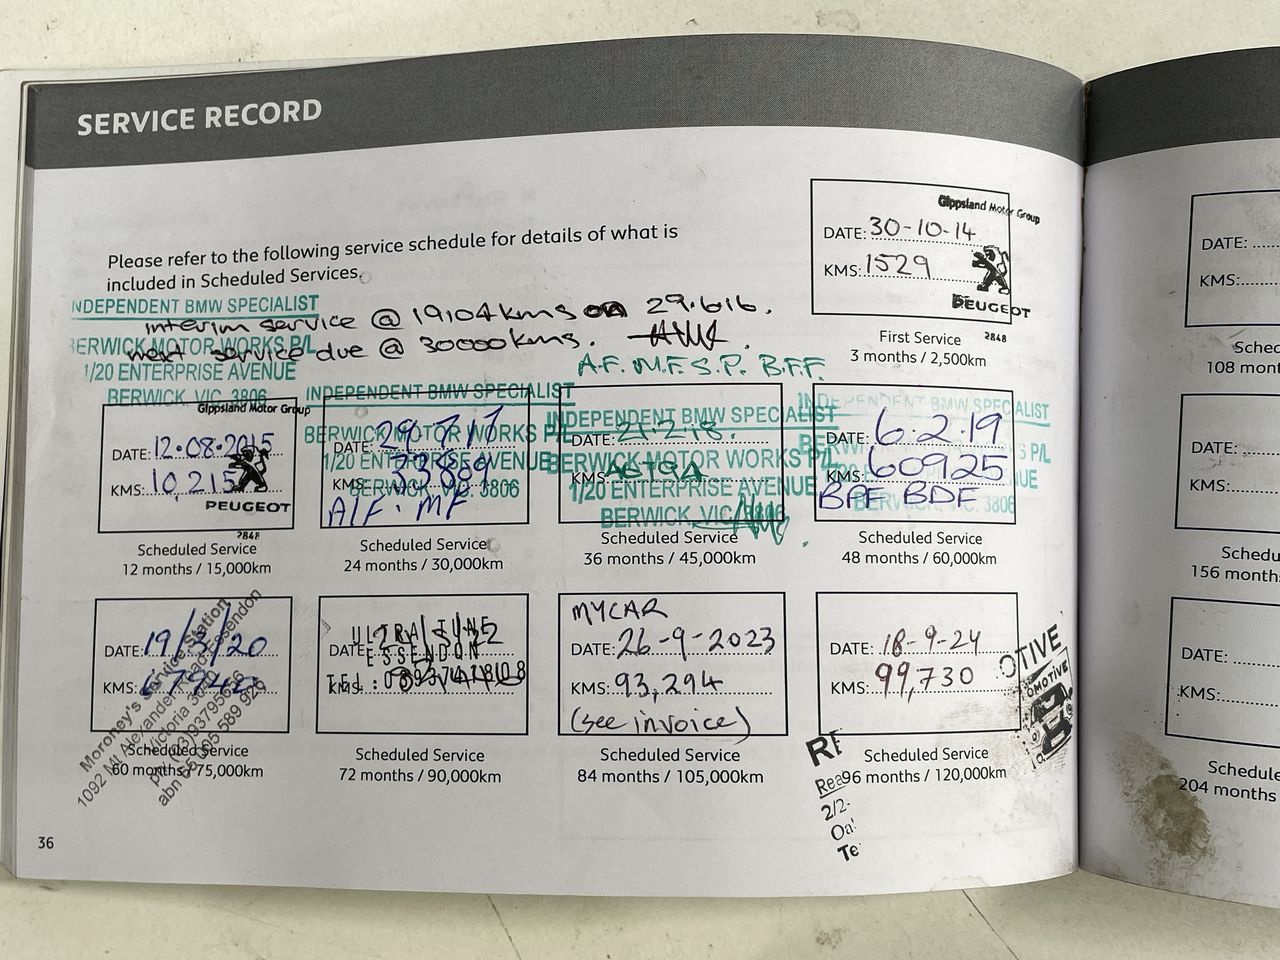 SERVICE RECORD
Please refer to the following service schedule for details of what is
included in Scheduled Services.
INDEPENDENT BMW SPECIALIST
interim service @ 19104kms on 29.6.16.
BERWICK MOTOR WORKS P/L
next service due @ 30000kms.
1/20 ENTERPRISE AVENUE
BERWICK, VIC, 3806
Gippsland Motor Group
DATE: 30-10-14
KMS: 1529
PEUGEOT
2848
First Service
3 months / 2,500km
Gippsland Motor Group
DATE: 12.08.2015
KMS: 10,215
PEUGEOT
2848
Scheduled Service
12 months / 15,000km
INDEPENDENT BMW SPECIALIST
BERWICK MOTOR WORKS P/L
DATE: 29.7.17
1/20 ENTERPRISE AVENUE
KMS: 33889
BERWICK, VIC. 3806
A/F. MF
Scheduled Service
24 months / 30,000km
A.F. M.F. S.P. B.F.F.
INDEPENDENT BMW SPECIALIST
DATE: 21.2.18.
BERWICK MOTOR WORKS P/L
KMS:
1/20 ENTERPRISE AVENUE
BERWICK, VIC, 3806
Scheduled Service
36 months / 45,000km
INDEPENDENT BMW SPECIALIST
DATE: 6.2.19
KMS: 60925
BPF BDF
VIC. 3806
Scheduled Service
48 months / 60,000km
DATE: 19/3/20
KMS:
Moroney's Service Station
1092 Mt. Alexander Road Essendon
Victoria
Scheduled Service
60 months / 75,000km
ULTRA TUNE
DATE:
ESSENDON
KMS:
TEL:
Scheduled Service
72 months / 90,000km
MYCAR
DATE: 26-9-2023
KMS: 93,294
(see invoice)
Scheduled Service
84 months / 105,000km
DATE: 18-9-24
KMS: 99,730
OTIVE
OMOTIVE
Scheduled Service
96 months / 120,000km
2/2-
Te
36
DATE:
KMS:
108
DATE:
KMS:
156
DATE:
KMS:
204 months